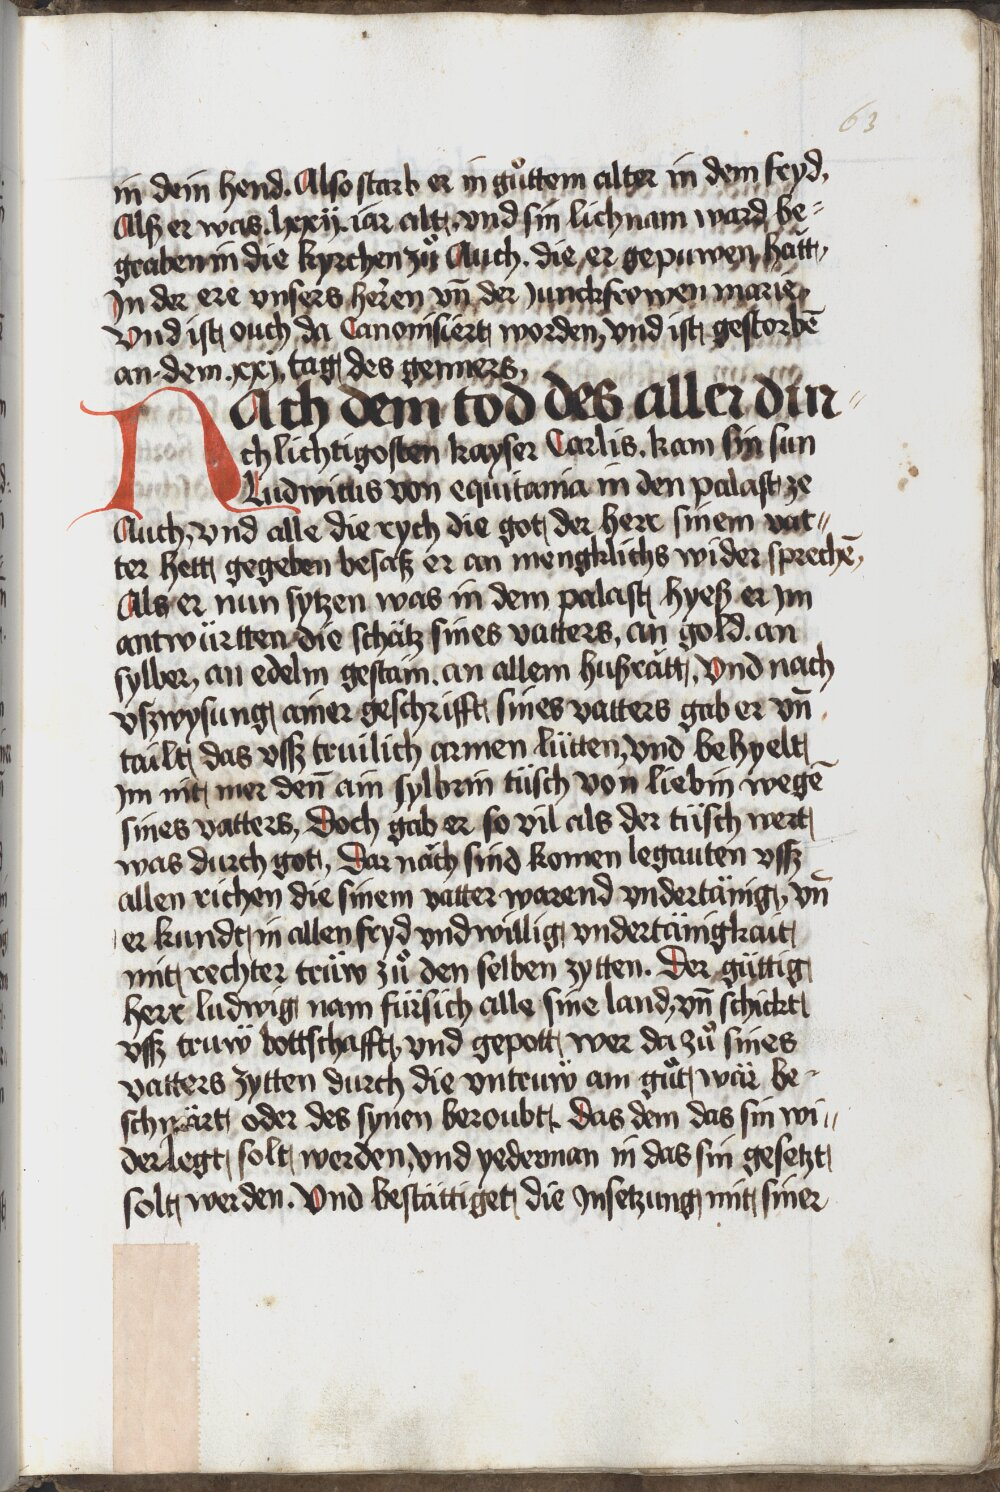 63
in dein hend. Also starb er in gůttem alter in dem fryd,
Alß er was .lxxij. iar alt, vnd sin lichnam ward be-
graben in die kyrchen zů Auch. die er gepuwen hätt,
In der ere vnsers heren vn̄ der Junckfrowen marie,
Vnd ist ouch da Canonisiert worden, vnd ist gestorbē
an dem .xxj. tag des genners,
NAch dem tod des aller dur-
chlichtigosten kayser Carlis. kam sin sun
Ludwicus von equitania in den palast ze
Auch, vnd alle die rych die got der herr sinem vat-
ter hett gegeben besaß er an mengklichs wider sprechē,
Als er nun sytzen was in dem palast hyeß er Im
antwürtten die schätz sines vatters, an gold. an
sylber, an edelm gestain. an allem hußrätt, Vnd nach
vßwysung ainer geschrifft sines vatters gab er vn̄
tailt das vsß truilich armen lütten, vnd behyelt
Im nit mer den̄ ain sylbrin tüsch von liebin wegē
sines vatters, Doch gab er so vil als der tüsch wert
was durch got, Dar näch sind komen legauten vsß
allen richen die sinem vatter warend vndertänig, vn̄
er kundt in allen fryd vnd willig vndertänigkait
mit rechter trüw zů den selben zytten. Der güttig
herr ludwig nam fürsich alle sine land, vn̄ schickt
vsß truw bottschafft, vnd gepott wer da zů sines
vatters zytten durch die vntruw am gůt wär be-
schwärt oder des synen beroubt. Das dem das sin wi-
derlegt solt werden, vnd yederman in das sin gesetzt
solt werden. Vnd bestättiget die Insetzung mit siner